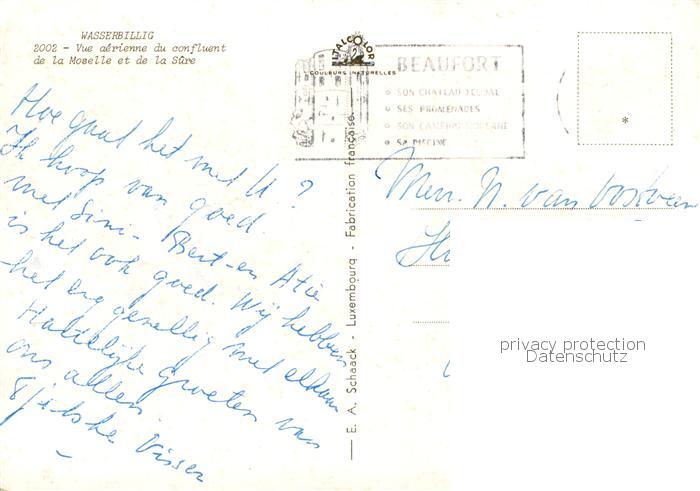 WASSERBILLIG
2002 - Vue aérienne du confluent
de la Moselle et de la Sûre
ITALCOLOR
COULEURS NATURELLES
BEAUFORT
SON CHATEAU FEODAL
SES PROMENADES
SON CAMPING MODERNE
SA PISCINE
*
E. A. Schaack - Luxembourg - Fabrication française
Hoe gaat het met U ?
Ik hoop van goed.
met Sini - Bert en Atie
is het ook goed. Wij hebben
het erg gezellig met elkaar
Hartelijke groeten van
ons allen
Visser
Mevr. N. van Oostveen
privacy protection
Datenschutz